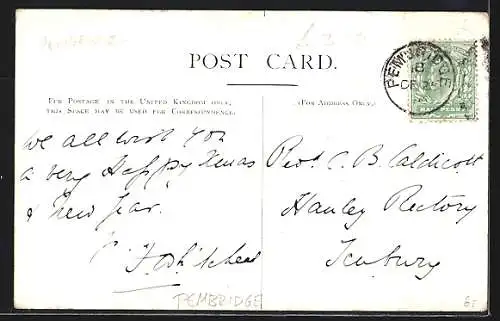 POST CARD.
FOR POSTAGE IN THE UNITED KINGDOM ONLY,
THIS SPACE MAY BE USED FOR CORRESPONDENCE.
(FOR ADDRESS ONLY.)
PEMBRIDGE
We all wish you
a very Happy Xmas
& New Year.
Revd C. B. Caldicott
Hanley Rectory
Tenbury
PEMBRIDGE